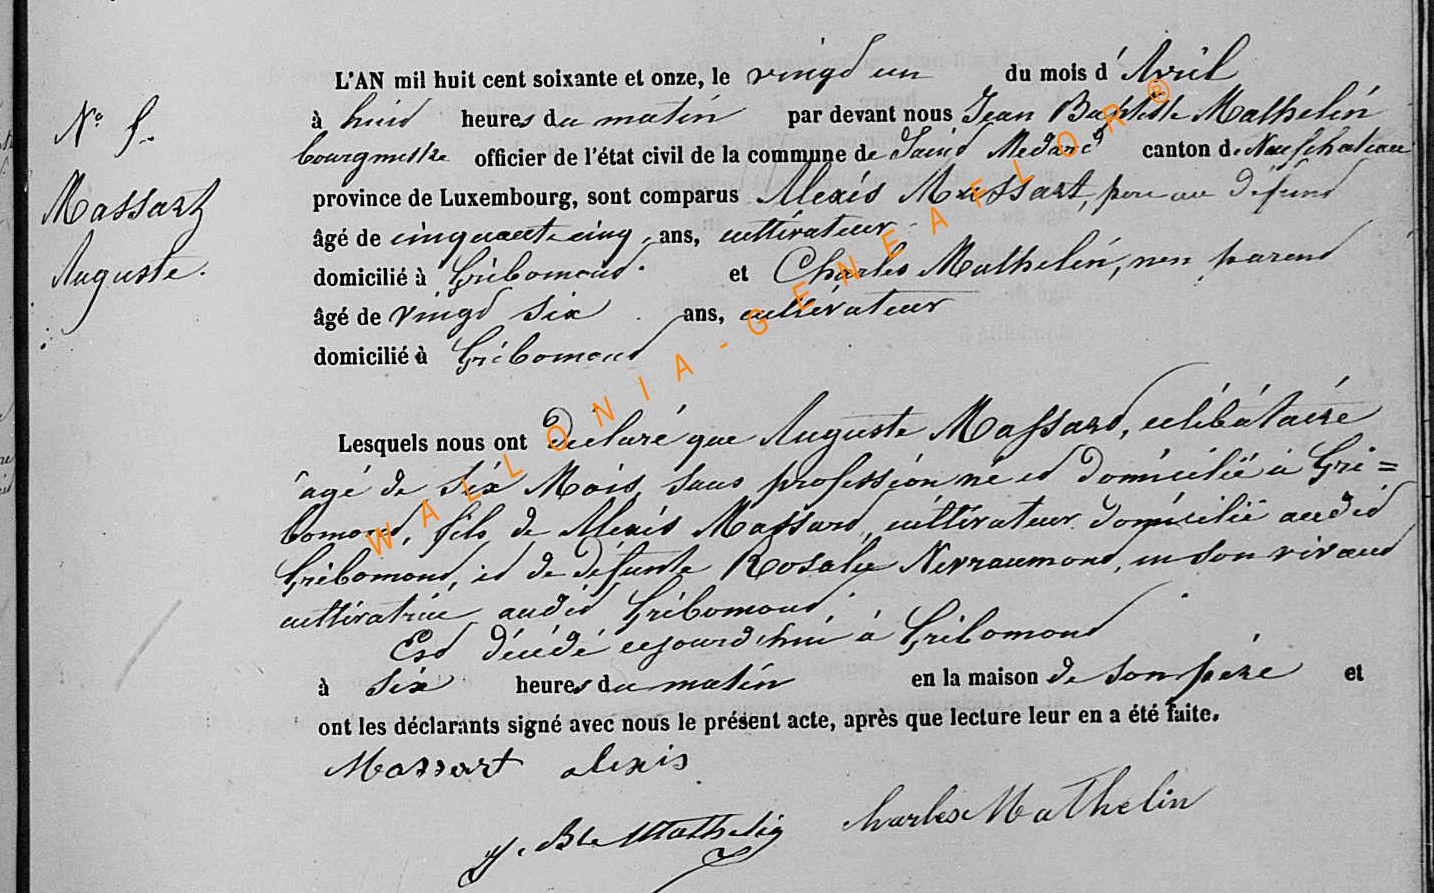 L'AN mil huit cent soixante et onze, le vingt un du mois d'Avril
N° 5.
à huit heures du matin par devant nous Jean Baptiste Mathelin
bourgmestre officier de l'état civil de la commune de Saint Medard canton de Neufchateau
Massart
province de Luxembourg, sont comparus Alexis Massart, père au défunt
âgé de cinquante cinq ans, cultivateur
Auguste.
domicilié à Gribomont. et Charles Mathelin, non parent
âgé de vingt six ans, cultivateur
domicilié à Gribomont
Lesquels nous ont déclaré que Auguste Massart, célibataire
âgé de six Mois, sans profession né et domicilié à Gri=
bomont, fils de Alexis Massart, cultivateur domicilié audit
Gribomont, et de défunte Rosalie Nevraumont, en son vivant
cultivatrice audit Gribomont.
Est décédé aujourd'hui à Gribomont
à six heures du matin en la maison de son père et
ont les déclarants signé avec nous le présent acte, après que lecture leur en a été faite.
Massart alexis
J. Bte Mathelin Charles Mathelin
WALLONIA-GENEAFLOR®